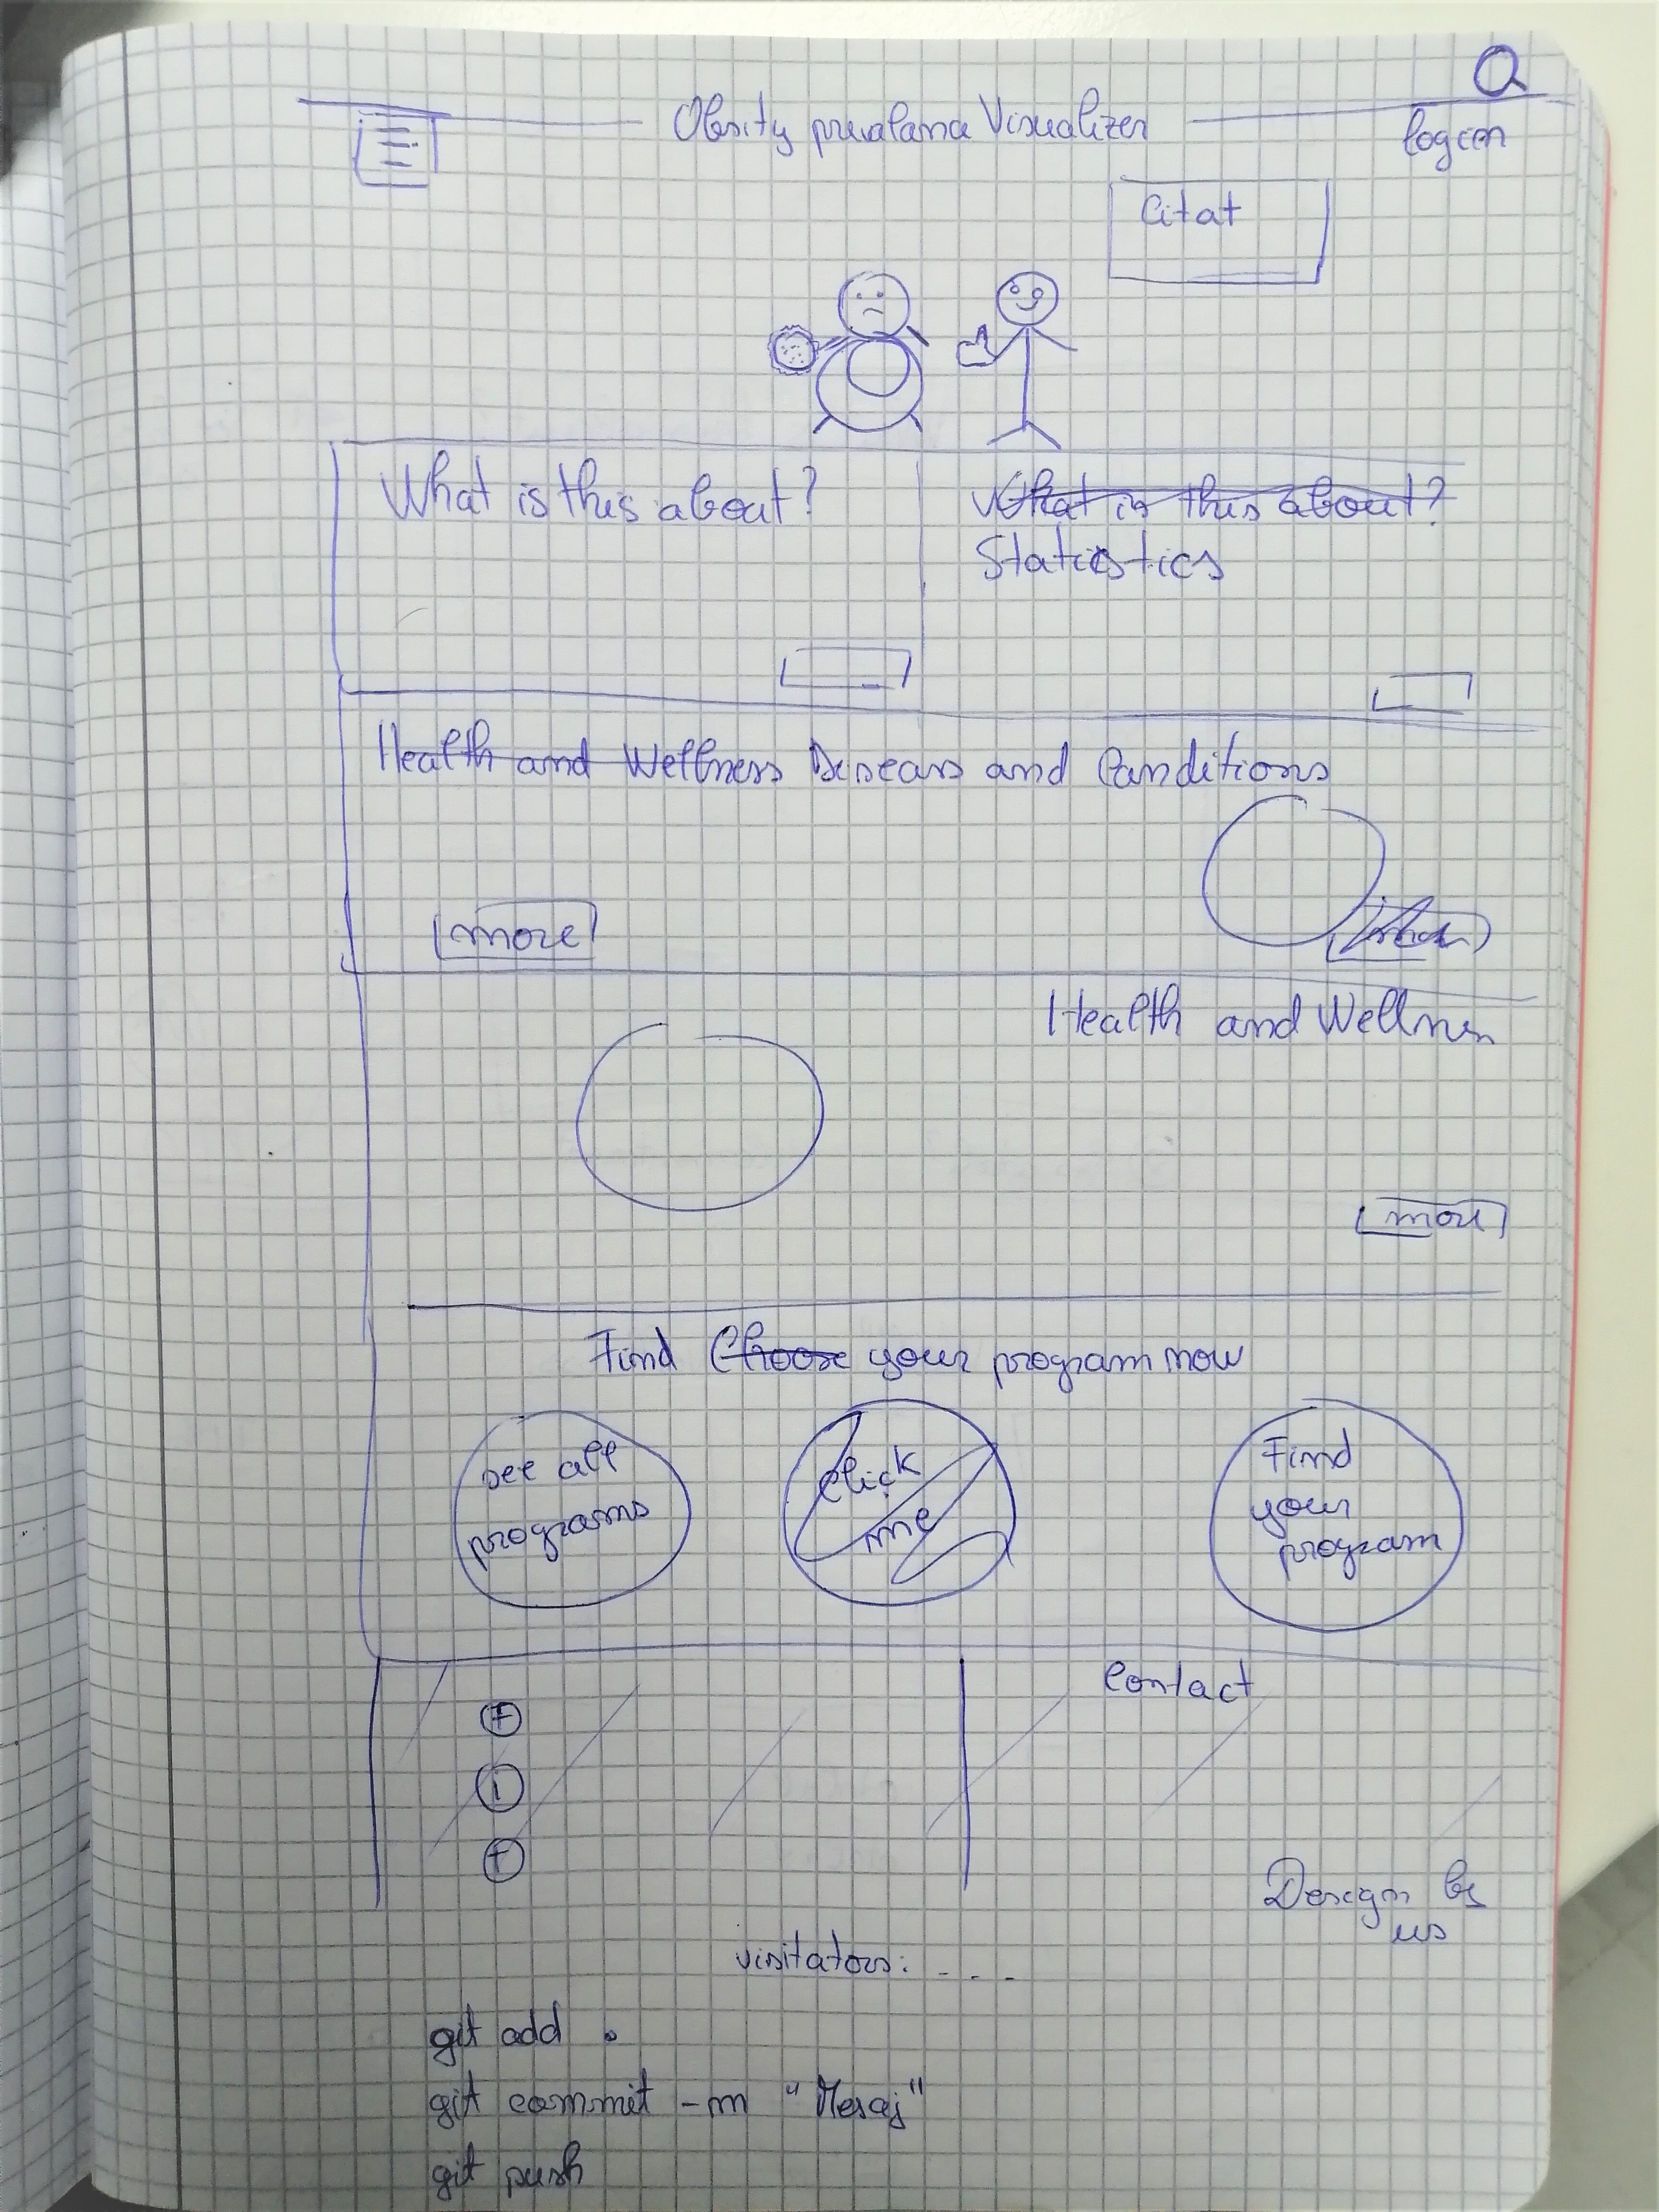 Obesity prevalana Visualizer
login
Citat
What is this about?
What is this about?
Statistics
Health and Wellness Diseases and Conditions
more
Health and Wellness
more
Find Choose your program now
see all
programs
click
me
Find
your
program
F
i
t
Contact
Design by
us
visitators: ...
git add .
git commit -m "Mesaj"
git push